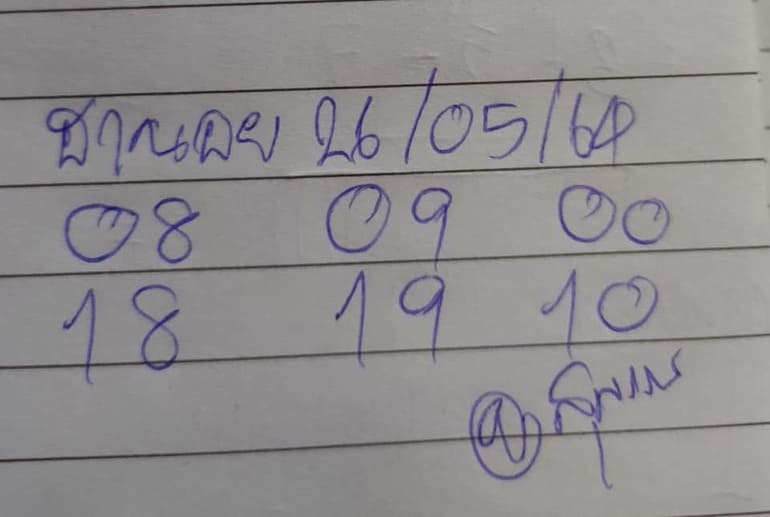 ฮานอย 26/05/64
08 09 00
18 19 10